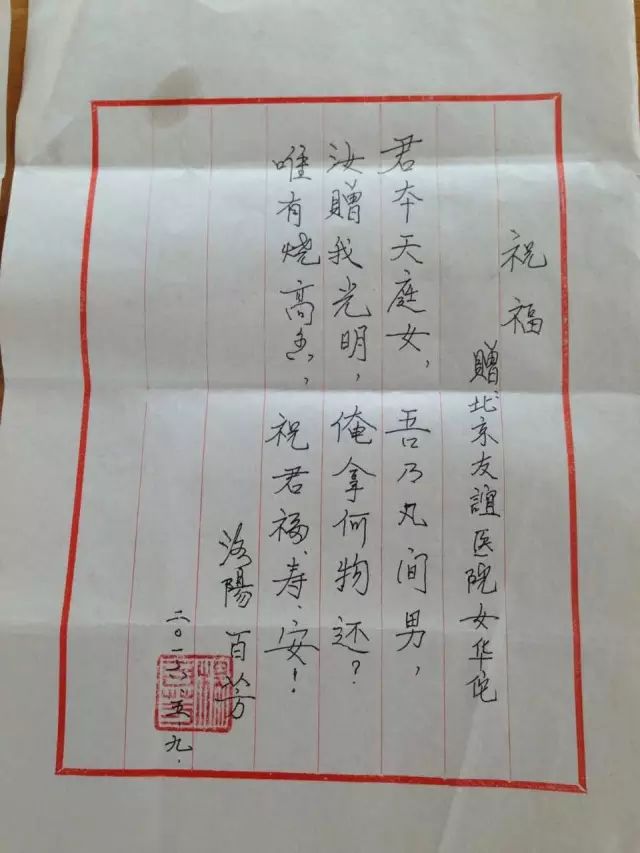 祝福
贈北京友誼医院女华佗
君本天庭女，吾乃凡间男，
汝贈我光明，俺拿何物还？
唯有烧高香，祝君福、寿、安！
洛陽 百芳
二〇一六.五.九.